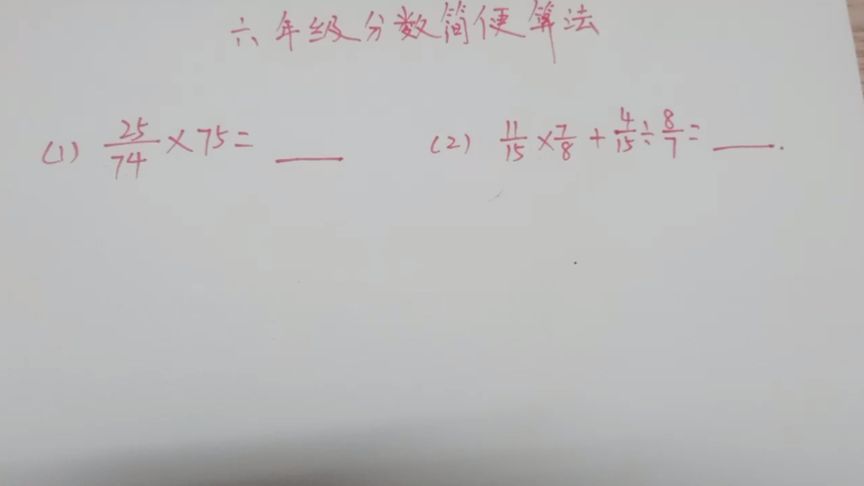 六年级分数简便算法
(1) 25/74 × 75 = ___ (2) 11/15 × 7/8 + 4/15 ÷ 8/7 = ___.